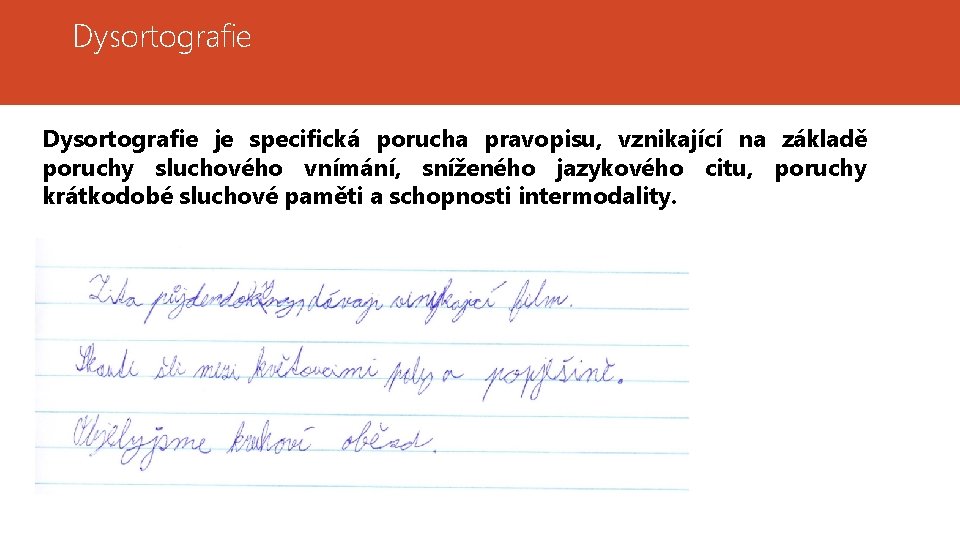 Dysortografie
Dysortografie je specifická porucha pravopisu, vznikající na základě
poruchy sluchového vnímání, sníženého jazykového citu, poruchy
krátkodobé sluchové paměti a schopnosti intermodality.
Zita dávaji film.
Skauti šli mezi květovacimi poly a popjěšině.
Objelyjsme kruhoví oběod.